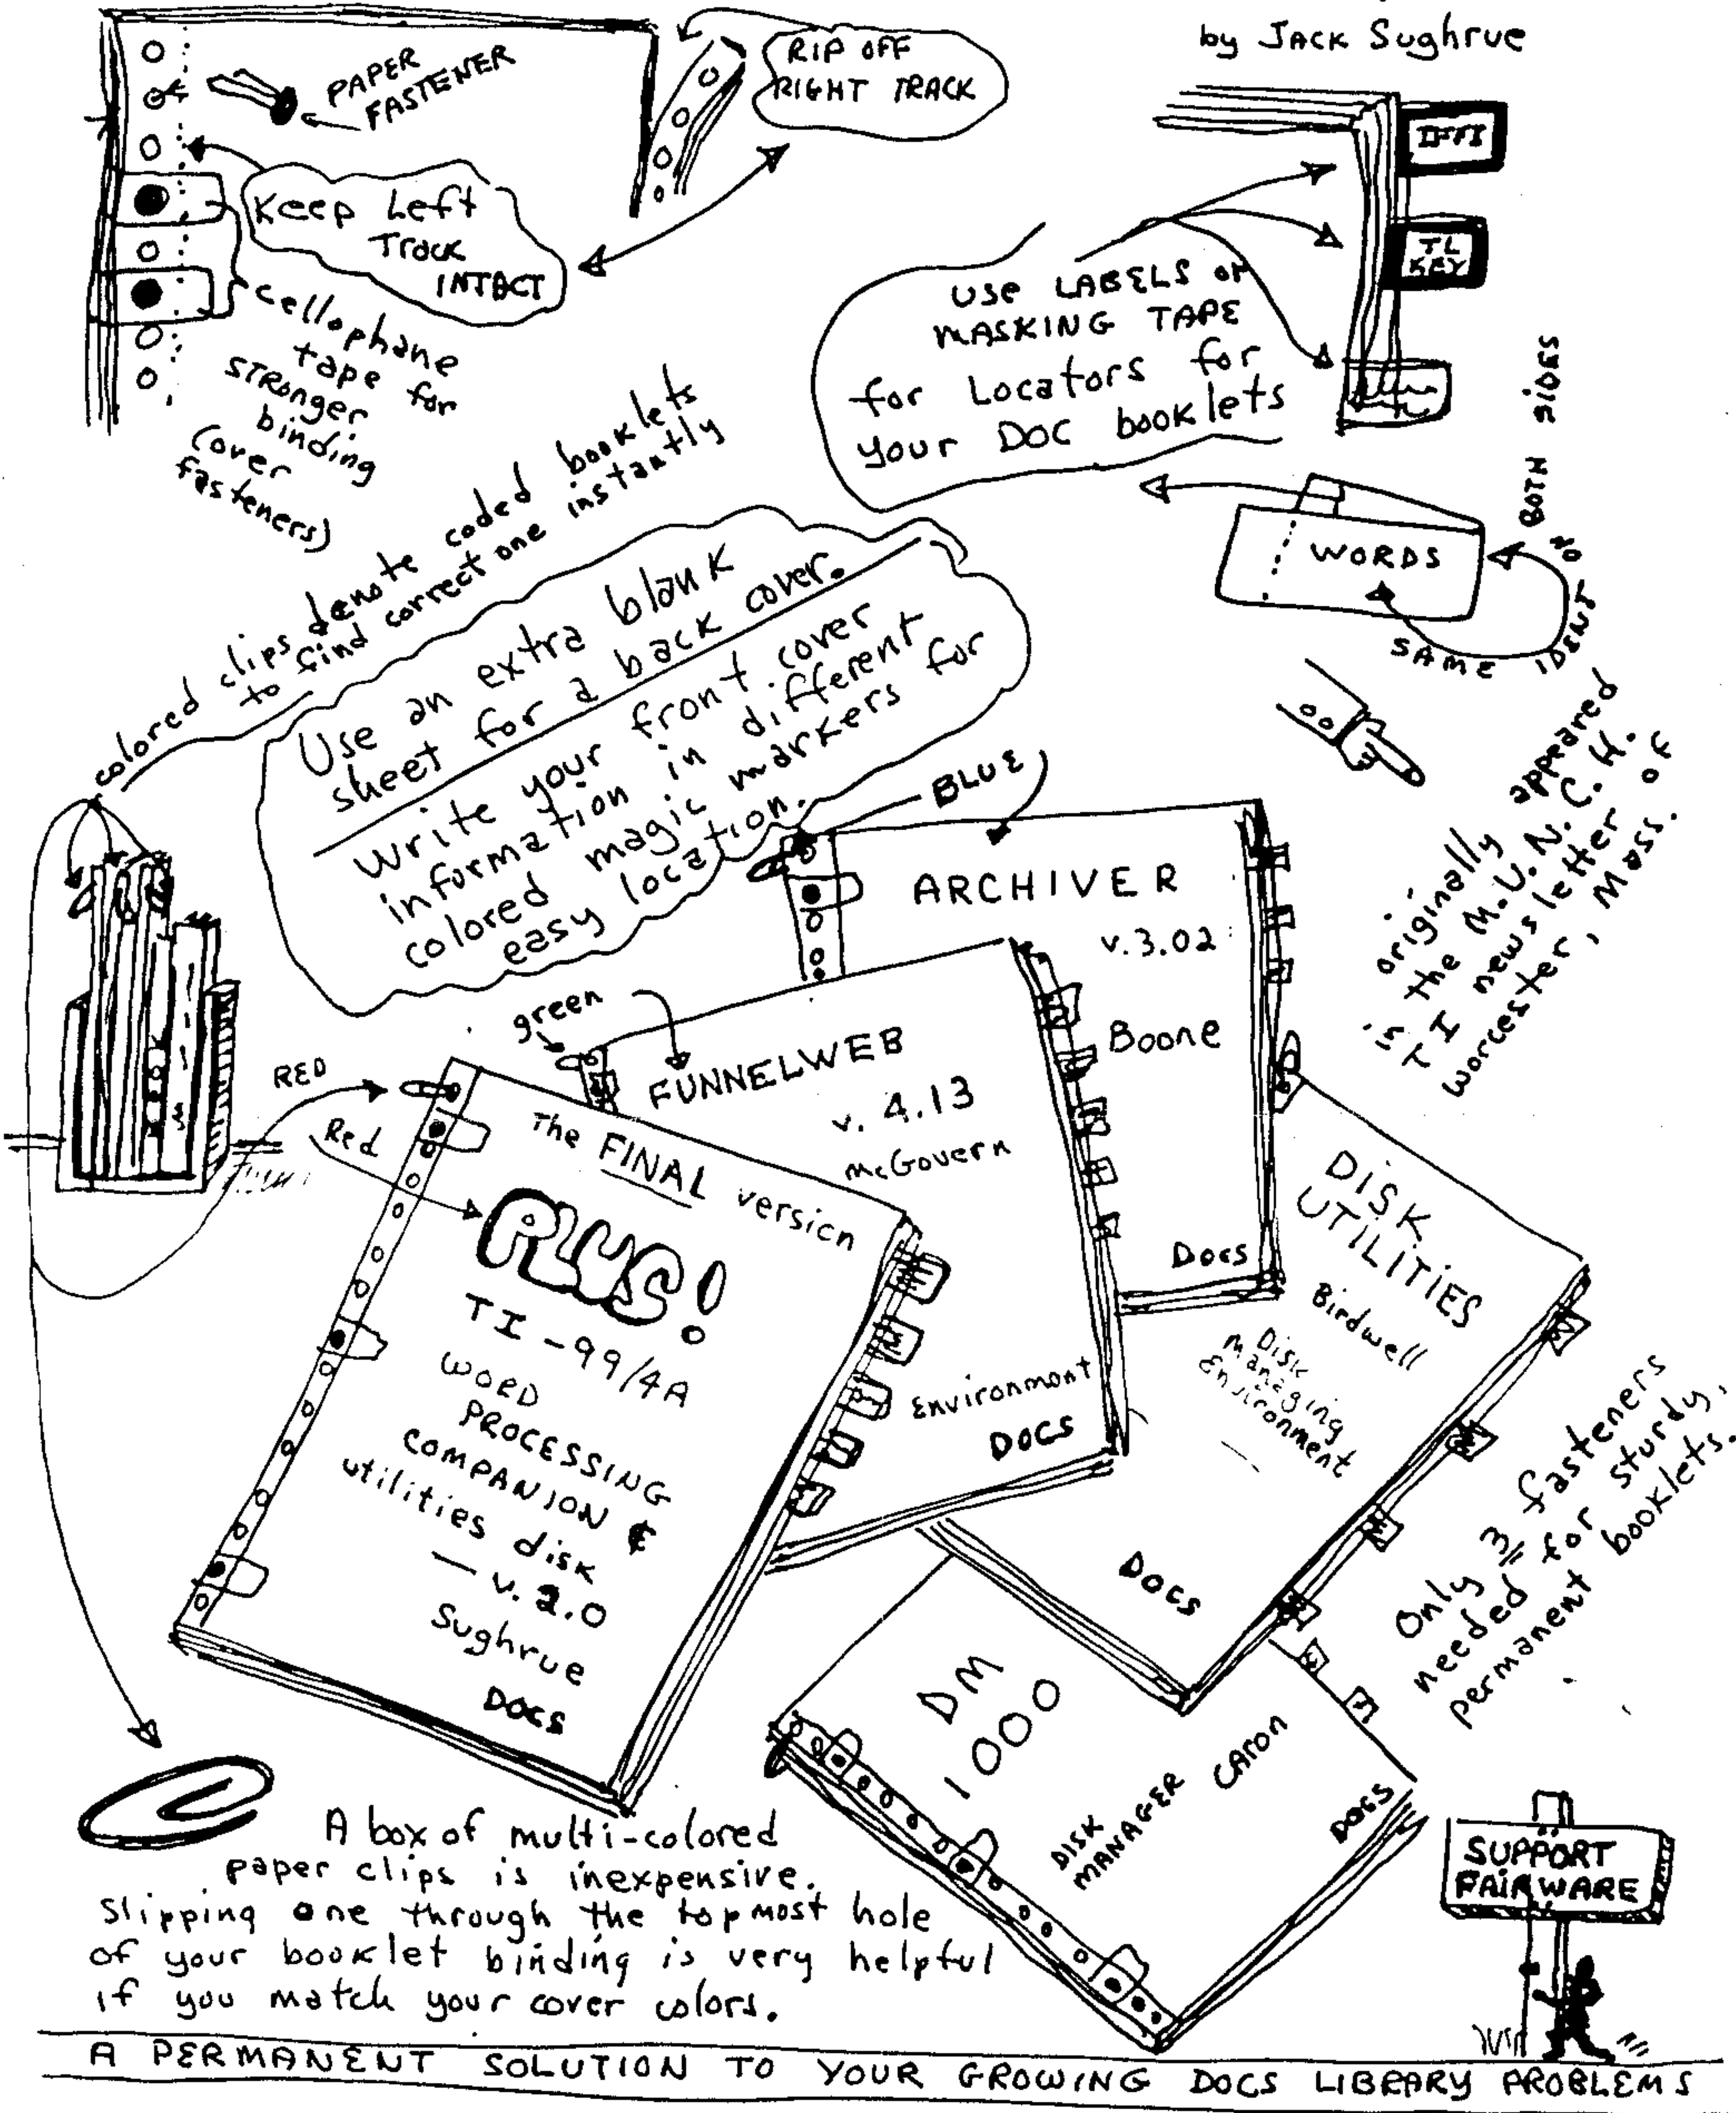 by JACK Sughrue
PAPER
FASTENER
RIP OFF
RIGHT TRACK
Keep Left
Track
INTACT
cellophane
tape for
STRonger
binding
(over
fasteners)
IFFI
TL
KEY
USE LABELS or
MASKING TAPE
for Locators for
your DOC booklets
BOTH SIDES
WORDS
SAME IDENT NO
colored clips denote coded booklets
to find correct one instantly
Use an extra blank
sheet for a back cover.
Write your front cover
information in different
colored magic markers for
easy location.
originally appeared
in the M.U.N.C.H.
TI newsletter of
Worcester, Mass.
BLUE
ARCHIVER
v.3.02
Boone
Docs
green
FUNNELWEB
v. 4.13
McGovern
Environment
DOCS
RED
Red
The FINAL version
PLUS!
TI-99/4A
WORD
PROCESSING
COMPANION &
utilities disk
— v. 2.0
Sughrue
DOCS
DISK
UTILITIES
Birdwell
Disk
Managing
Environment
DOCS
Only 3 fasteners
needed for sturdy,
permanent booklets.
DM
1000
DISK
MANAGER
CARON
DOCS
A box of multi-colored
paper clips is inexpensive.
Slipping one through the topmost hole
of your booklet binding is very helpful
if you match your cover colors.
SUPPORT
FAIRWARE
A PERMANENT SOLUTION TO YOUR GROWING DOCS LIBRARY PROBLEMS